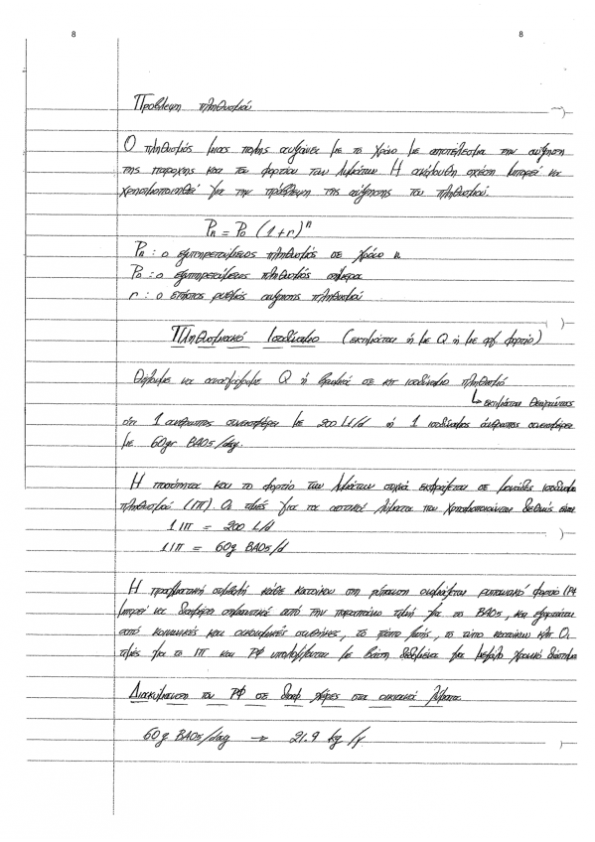 8 8
Πρόβλεψη πληθυσμού
Ο πληθυσμός μιας πόλης αυξάνει με το χρόνο με αποτέλεσμα την αύξηση
της παροχής και του φορτίου των λυμάτων. Η ακόλουθη σχέση μπορεί να
χρησιμοποιηθεί για την πρόβλεψη της αύξησης του πληθυσμού.
Pn = Po (1+r)^n
Pn : ο εξυπηρετούμενος πληθυσμός σε χρόνο n
Po : ο εξυπηρετούμενος πληθυσμός σήμερα
r : ο ετήσιος ρυθμός αύξησης πληθυσμού
Πληθυσμιακό Ισοδύναμο (εκτιμάται ή με Q ή με φορτίο)
Θέλουμε να Q ή σε ισοδύναμο πληθυσμό
↳ εκτιμάται θεωρώντας
ότι 1 άνθρωπος συνεισφέρει με 200 Lt/d ή 1 ισοδύναμος άνθρωπος συνεισφέρει
με 60gr BAO5/day.
Η ποσότητα και το φορτίο των λυμάτων συχνά εκφράζεται σε μονάδες ισοδύναμου
πληθυσμού (ΙΠ). Οι τιμές για τα αστικά λύματα που χρησιμοποιούνται διεθνώς είναι
1 ΙΠ = 200 L/d
1 ΙΠ = 60g BAO5/d
Η πραγματική συμβολή κάθε κατοίκου στη ρύπανση ονομάζεται ρυπαντικό φορτίο (ΡΦ
μπορεί να διαφέρει σημαντικά από την παραπάνω τιμή για το BAO5, και εξαρτάται
από κοινωνικές και οικονομικές συνθήκες, το τρόπο ζωής, το τύπο κατοικιών κλπ. Οι
τιμές για το ΙΠ και ΡΦ υπολογίζονται με βάση δεδομένα για μεγάλο χρονικό διάστημα
Διακύμανση του ΡΦ σε διαφ χώρες στα οικιακά λύματα
60g BAO5/day → 21.9 kg/y